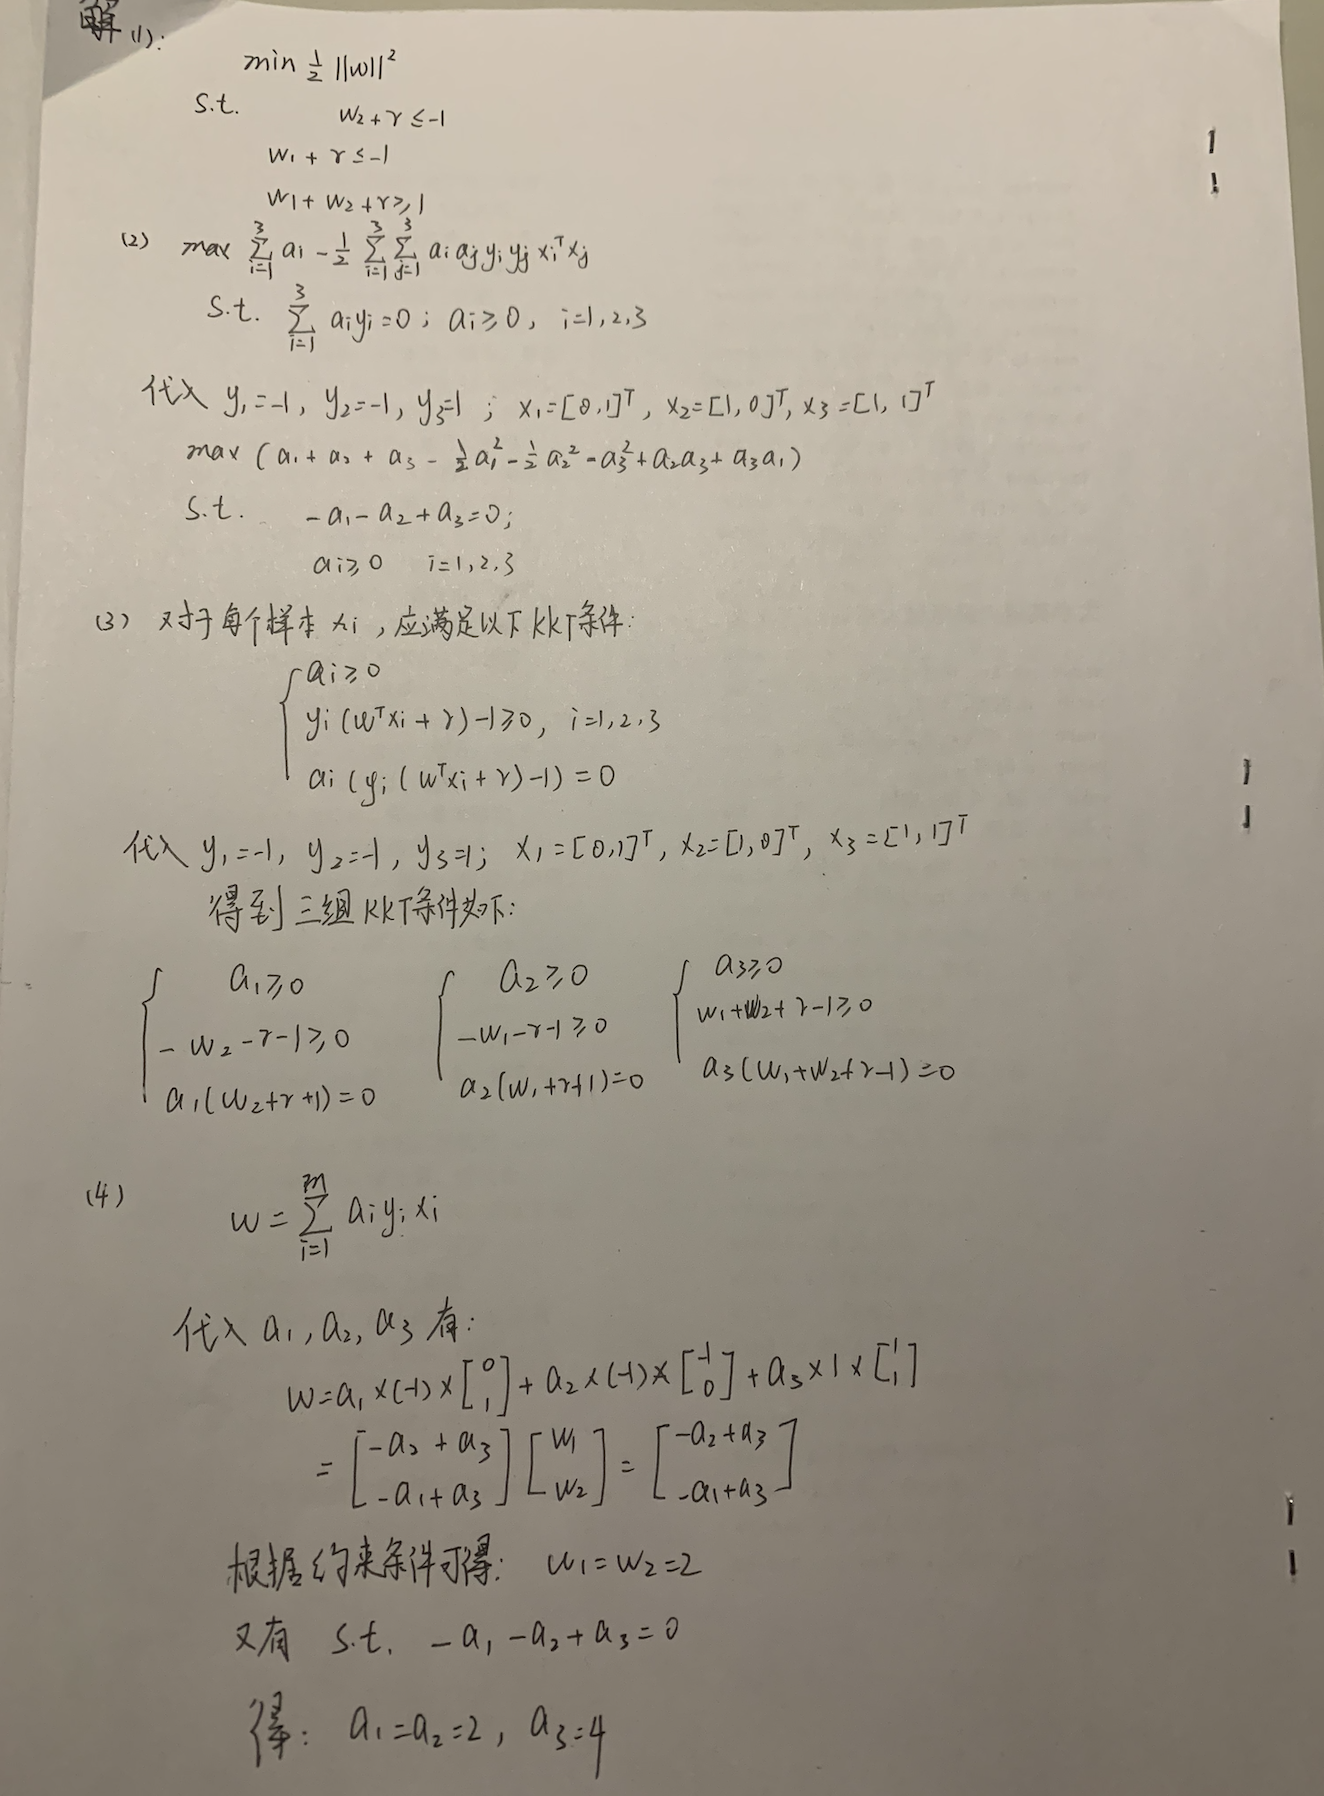 解(1):
min ½ ||w||²
s.t. w₂+r ≤ -1
w₁+r ≤ -1
w₁+w₂+r ≥ 1
(2) max Σ_{i=1}^{3} aᵢ - ½ Σ_{i=1}^{3} Σ_{j=1}^{3} aᵢ aⱼ yᵢ yⱼ xᵢᵀ xⱼ
s.t. Σ_{i=1}^{3} aᵢyᵢ=0; aᵢ≥0, i=1,2,3
代入 y₁=-1, y₂=-1, y₃=1; x₁=[0,1]ᵀ, x₂=[1,0]ᵀ, x₃=[1,1]ᵀ
max (a₁+a₂+a₃-½a₁²-½a₂²-a₃²+a₂a₃+a₃a₁)
s.t. -a₁-a₂+a₃=0;
aᵢ≥0 i=1,2,3
(3) 对于每个样本xᵢ,应满足以下KKT条件:
aᵢ≥0
yᵢ(wᵀxᵢ+r)-1≥0, i=1,2,3
aᵢ(yᵢ(wᵀxᵢ+r)-1)=0
代入 y₁=-1, y₂=-1, y₃=1; x₁=[0,1]ᵀ, x₂=[1,0]ᵀ, x₃=[1,1]ᵀ
得到三组KKT条件如下:
a₁≥0
-w₂-r-1≥0
a₁(w₂+r+1)=0
a₂≥0
-w₁-r-1≥0
a₂(w₁+r+1)=0
a₃≥0
w₁+w₂+r-1≥0
a₃(w₁+w₂+r-1)=0
(4) w=Σ_{i=1}^{m} aᵢyᵢxᵢ
代入a₁,a₂,a₃有:
w=a₁×(-1)×[0 1]+a₂×(-1)×[-1 0]+a₃×1×[1 1]
=[-a₂+a₃ -a₁+a₃][w₁ w₂]=[-a₂+a₃ -a₁+a₃]
根据约束条件可得: w₁=w₂=2
又有 s.t. -a₁-a₂+a₃=0
得: a₁=a₂=2, a₃=4